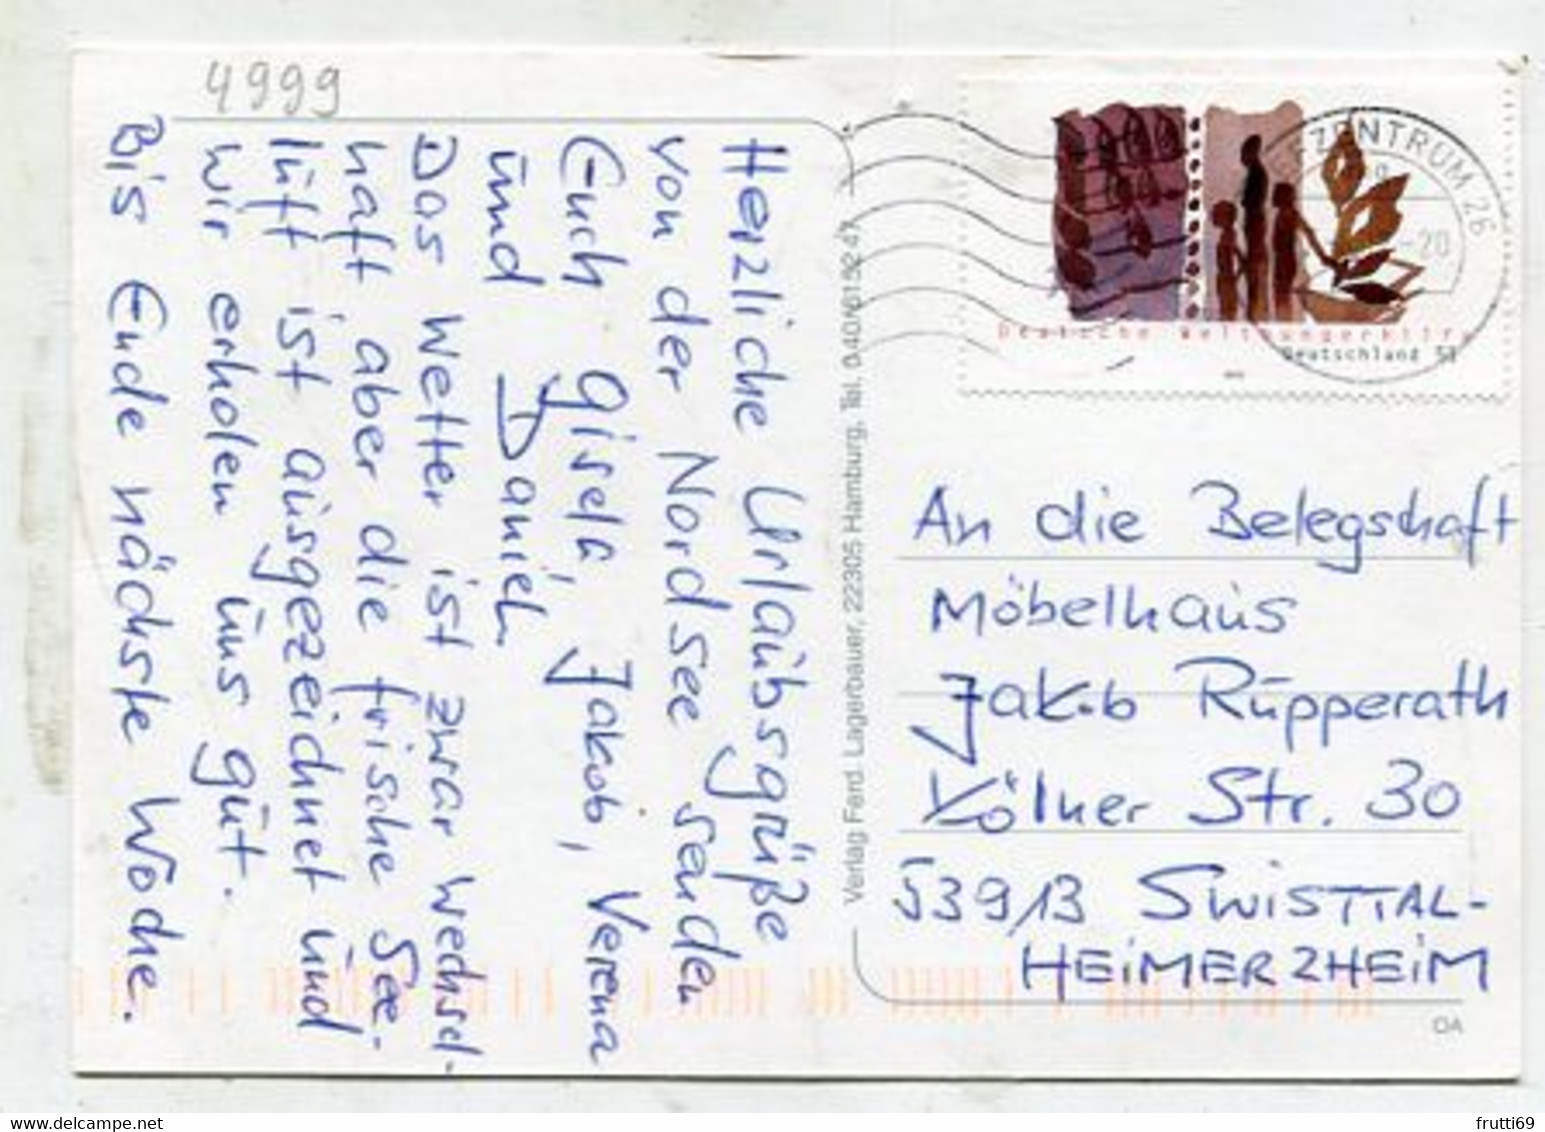 4999
Herzliche Urlaubsgrüße
von der Nordsee senden
Euch Gisela, Jakob, Verena
und Daniel.
Das Wetter ist zwar wechsel-
haft aber die frische See-
luft ist ausgezeichnet und
wir erholen uns gut.
Bis Ende nächste Woche.
Verlag Ferd. Lagerbauer, 22305 Hamburg, Tel. 040/6152 47
ZENTRUM 26
-20
Deutsche Welthungerhilfe
Deutschland
An die Belegschaft
Möbelhaus
Jakob Rüpperath
Kölner Str. 30
53913 SWISTTAL-
HEIMERZHEIM
OA
frutti69